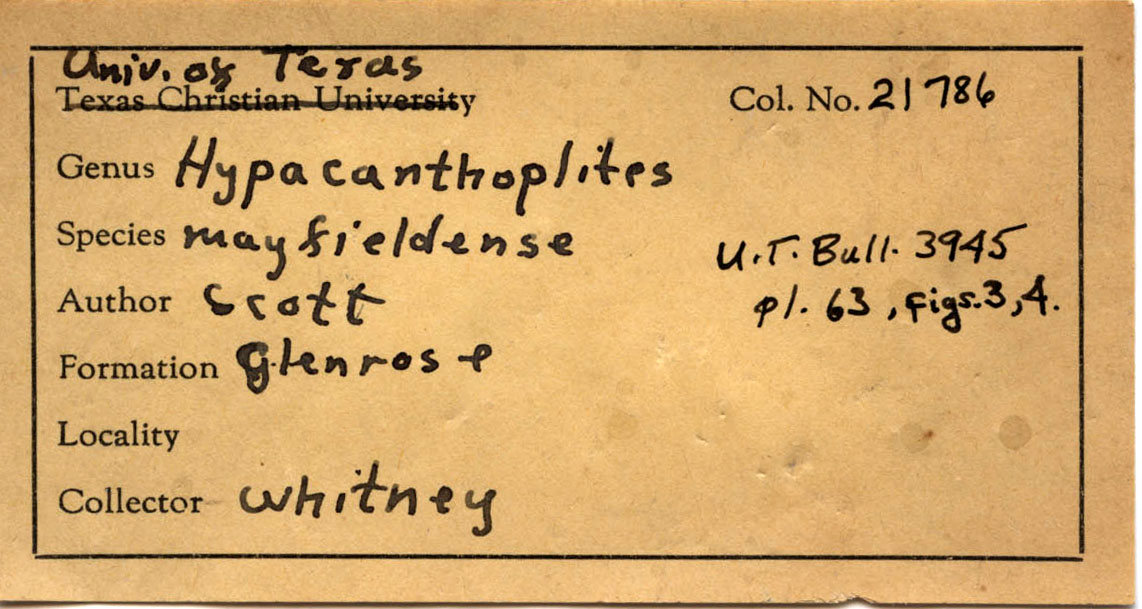 Univ. of Texas
Texas Christian University Col. No. 21786
Genus Hypacanthoplites
Species mayfieldense
U.T. Bull. 3945
Author Scott
pl. 63, figs. 3, 4.
Formation Glenrose
Locality
Collector Whitney